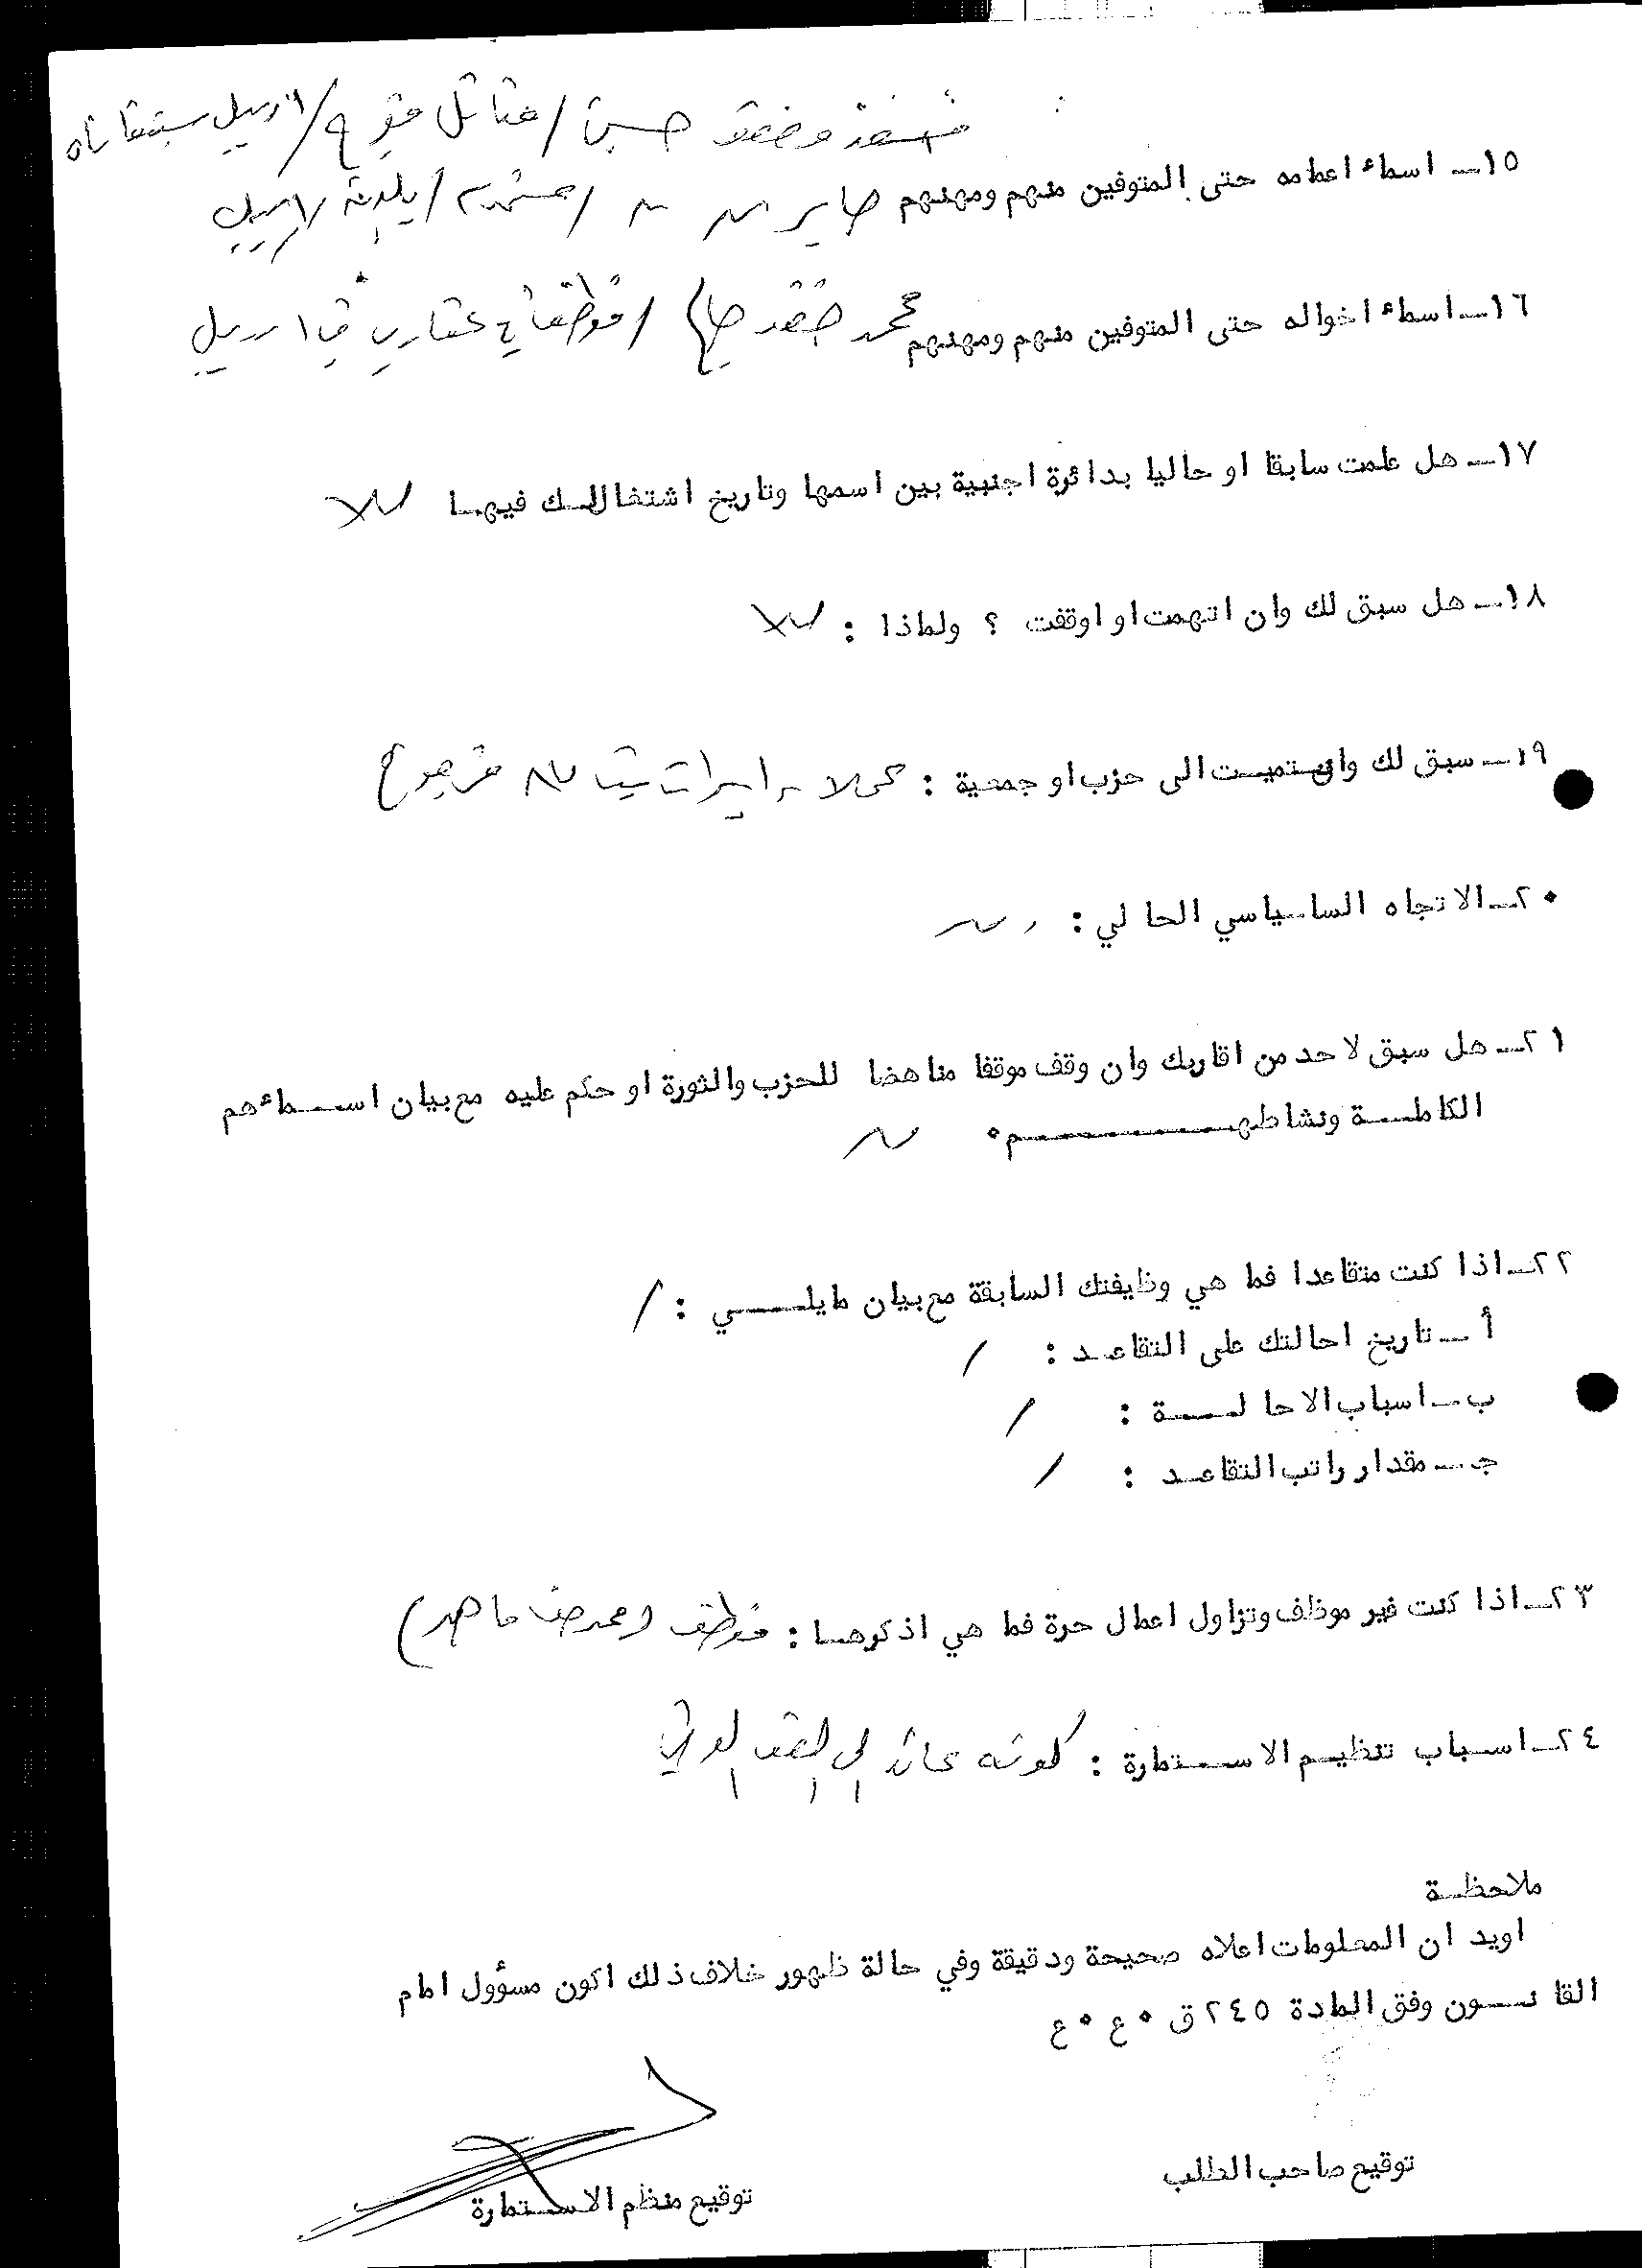 حسين /
١٥ـ اسماء اعمامه حتى المتوفين منهم ومهنهم صابر
١٦ـ اسماء اخواله حتى المتوفين منهم ومهنهم محمد خضر صالح /
١٧ـ هل علمت سابقا او حاليا بدائرة اجنبية بين اسمها وتاريخ اشتغالك فيها كلا
١٨ـ هل سبق لك وان اتهمت او اوقفت ؟ ولماذا : كلا
١٩ـ سبق لك وانتميت الى حزب او جمعية :
٢٠ـ الاتجاه الساسياسي الحالي :
٢١ـ هل سبق لاحد من اقاربك وان وقف موقفا مناهضا للحزب والثورة او حكم عليه مع بيان اسماءهم
الكاملة ونشاطهم٠
٢٢ـ اذا كنت متقاعدا فما هي وظايفتك السابقة مع بيان مايلي : /
أ ـ تاريخ احالتك على التقاعد : /
ب ـ اسباب الاحالة : /
جـ ـ مقدار راتب التقاعد : /
٢٣ـ اذا كنت غير موظف وتزاول اعمال حرة فما هي اذكرها : موظف
٢٤ـ اسباب تنظيم الاستمارة : كونه عائد الى الصف الوطني
ملاحظة
اويد ان المعلومات اعلاه صحيحة ودقيقة وفي حالة ظهور خلاف ذلك اكون مسؤول امام
القانون وفق المادة ٢٤٥ ق ٠ ع ٠ ع
توقيع صاحب الطلب
توقيع منظم الاستمارة